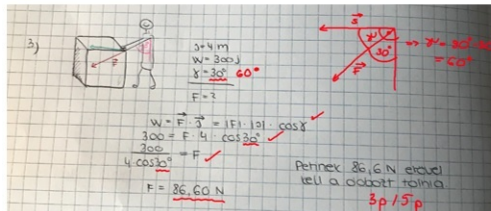 3)
F
s = 4 m
W = 300 J
γ = 30° 60°
F = ?
s
γ
30°
F
⇒ γ = 90° - 30°
= 60°
W = F · s = |F| · |s| · cosγ
300 = F · 4 · cos30°
300 / 4·cos30° = F
F = 86,60 N
Pennex 86,6 N erővel
tell a dobozt tolnia
3p / 5p